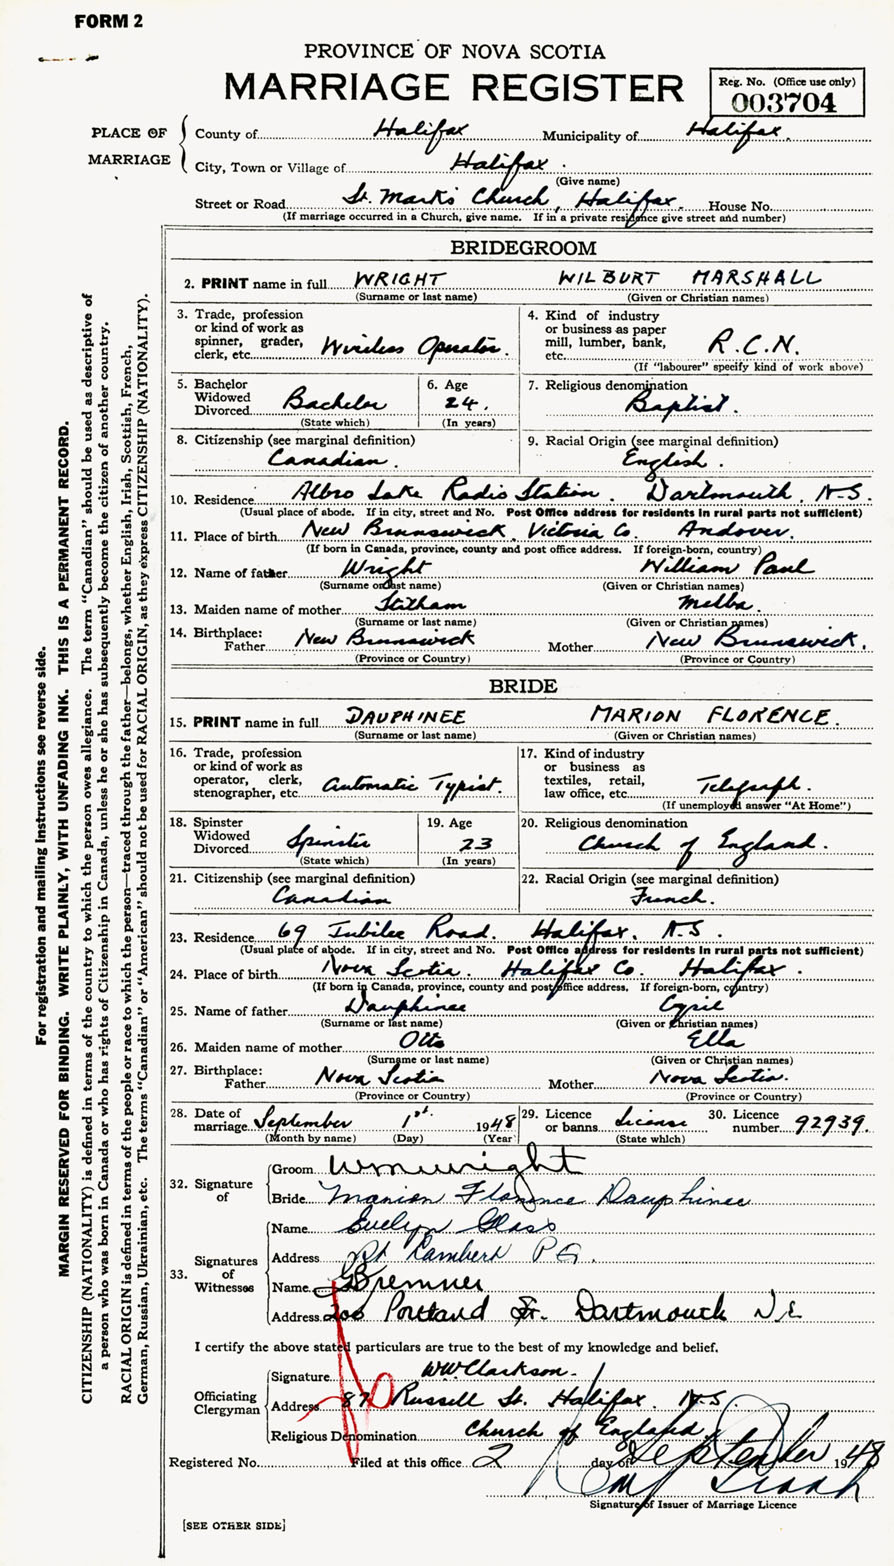 FORM 2
PROVINCE OF NOVA SCOTIA
MARRIAGE REGISTER
Reg. No. (Office use only)
003704
PLACE OF MARRIAGE
County of Halifax Municipality of Halifax.
City, Town or Village of Halifax.
(Give name)
Street or Road St. Mark's Church, Halifax. House No.
(If marriage occurred in a Church, give name. If in a private residence give street and number)
BRIDEGROOM
2. PRINT name in full WRIGHT WILBURT MARSHALL
(Surname or last name) (Given or Christian names)
3. Trade, profession or kind of work as spinner, grader, clerk, etc. Wireless Operator.
4. Kind of industry or business as paper mill, lumber, bank, etc. R.C.N.
(If "labourer" specify kind of work above)
5. Bachelor Widowed Divorced Bachelor
(State which)
6. Age 24.
(In years)
7. Religious denomination
Baptist.
8. Citizenship (see marginal definition)
Canadian.
9. Racial Origin (see marginal definition)
English.
10. Residence Albro Lake Radio Station. Dartmouth, N.S.
(Usual place of abode. If in city, street and No. Post Office address for residents in rural parts not sufficient)
11. Place of birth New Brunswick, Victoria Co. Andover.
(If born in Canada, province, county and post office address. If foreign-born, country)
12. Name of father Wright William Paul
(Surname or last name) (Given or Christian names)
13. Maiden name of mother Statham Melba.
(Surname or last name) (Given or Christian names)
14. Birthplace:
Father New Brunswick Mother New Brunswick.
(Province or Country) (Province or Country)
BRIDE
15. PRINT name in full DAUPHINEE MARION FLORENCE.
(Surname or last name) (Given or Christian names)
16. Trade, profession or kind of work as operator, clerk, stenographer, etc. Automatic Typist.
17. Kind of industry or business as textiles, retail, law office, etc. Telegraph.
(If unemployed answer "At Home")
18. Spinster Widowed Divorced Spinster
(State which)
19. Age 23
(In years)
20. Religious denomination
Church of England.
21. Citizenship (see marginal definition)
Canadian
22. Racial Origin (see marginal definition)
French.
23. Residence 69 Jubilee Road. Halifax, N.S.
(Usual place of abode. If in city, street and No. Post Office address for residents in rural parts not sufficient)
24. Place of birth Nova Scotia. Halifax Co. Halifax.
(If born in Canada, province, county and post office address. If foreign-born, country)
25. Name of father Dauphinee Cyril
(Surname or last name) (Given or Christian names)
26. Maiden name of mother Otto Ella
(Surname or last name) (Given or Christian names)
27. Birthplace:
Father Nova Scotia Mother Nova Scotia.
(Province or Country) (Province or Country)
28. Date of marriage September 1st. 1948
(Month by name) (Day) (Year)
29. Licence or banns License
(State which)
30. Licence number 92939.
32. Signature of
Groom WMWright
Bride Marion Florence Dauphinee
33. Signatures of Witnesses
Name Evelyn Glass
Address Lambert PQ.
Name GBremner
Address 200 Portland St. Dartmouth N.S
I certify the above stated particulars are true to the best of my knowledge and belief.
Officiating Clergyman
Signature WWClarkson.
Address 87 Russell St. Halifax. N.S.
Religious Denomination Church of England.
Registered No. Filed at this office 2 day of September 1948
Signature of Issuer of Marriage Licence
[SEE OTHER SIDE]
For registration and mailing instructions see reverse side.
MARGIN RESERVED FOR BINDING. WRITE PLAINLY, WITH UNFADING INK. THIS IS A PERMANENT RECORD.
CITIZENSHIP (NATIONALITY) is defined in terms of the country to which the person owes allegiance. The term "Canadian" should be used as descriptive of
a person who was born in Canada or who has rights of Citizenship in Canada, unless he or she has subsequently become the citizen of another country.
RACIAL ORIGIN is defined in terms of the people or race to which the person—traced through the father—belongs, whether English, Irish, Scottish, French,
German, Russian, Ukrainian, etc. The terms "Canadian" or "American" should not be used for RACIAL ORIGIN, as they express CITIZENSHIP (NATIONALITY).